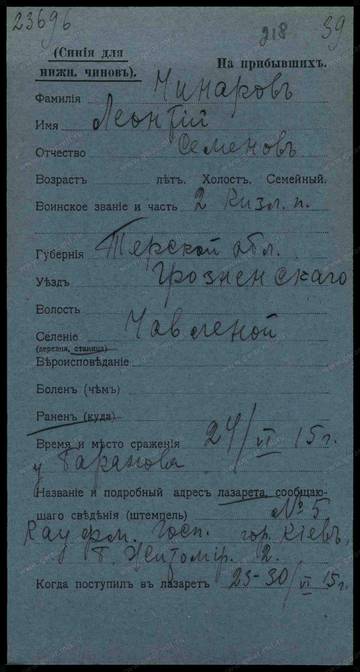 23696
218
39
(Синія для
нижн. чиновъ).
На прибывшихъ.
Фамилія Чинаровъ
Имя Леонтій
Отчество Семеновъ
Возрастъ лѣтъ. Холост. Семейный.
Воинское званіе и часть 2 Кизл. п.
Губернія Терской обл.
Уѣздъ Грозненскаго
Волость
Селеніе
(деревня, станица)
Вѣроисповѣданіе
Боленъ (чѣмъ)
Раненъ (куда)
Время и мѣсто сраженія 24/VI 15 г.
у Баранова
Названіе и подробный адресъ лазарета, сообщаю-
щаго свѣдѣнія (штемпель) № 5
госп. гор. Кіевъ,
Житомір. 2.
Когда поступилъ въ лазаретъ 23-30/VI 15г.